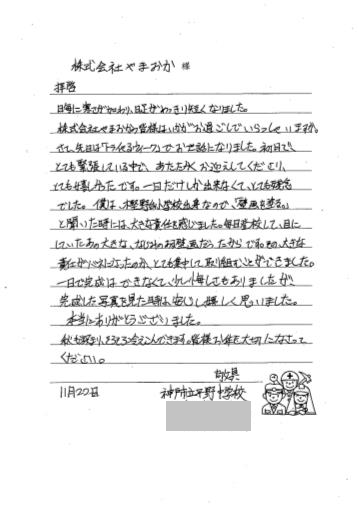 株式会社やまおか 様
拝啓
日毎に寒さが加わり、日足がめっきり短くなりました。
株式会社やまおかの皆様はいかがお過ごしでいらっしゃいますか。
さて、先日は「トライやるウィーク」でお世話になりました。初日で、
とても緊張している中で、あたたかくお迎えしてくださり、
とても嬉しかったです。一日だけしか出来なくて、とても残念
でした。僕は、木堅野台小学校出身なので、「壁画を塗る。」
と聞いた時には、大きな責任を感じました。毎日登校して、目に
していたあの大きな、壁画だったからです。もの、大きな
責任がバネになったのか、とても集中して取り組むことができました。
一日で完成はできなくて、少し悔しさもありましたが、
完成した写真を見た時は、安心し嬉しく思いました。
本当にありがとうございました。
秋も深まり、冷え込んできます。皆様でお体を大切になさって
ください。
敬具
11月20日 神戸市立平野中学校